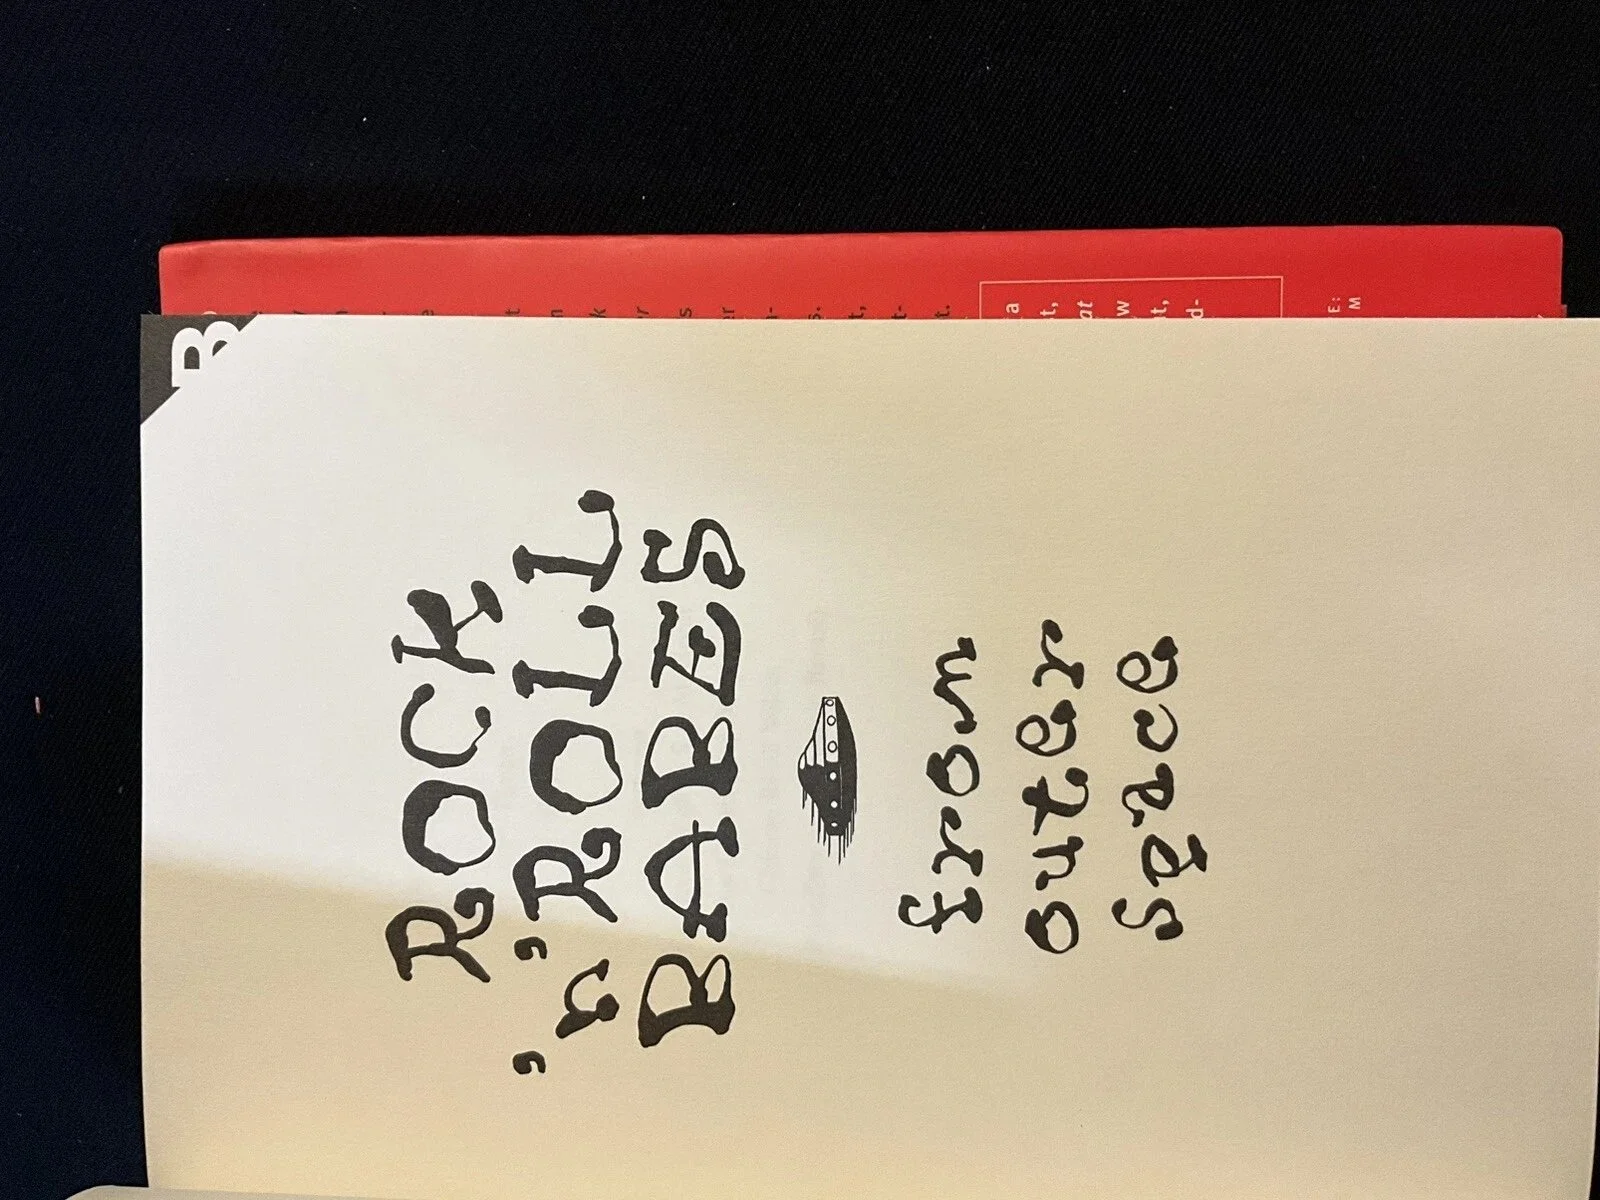 ROCK
'n' ROLL
BABES
from
outer
space